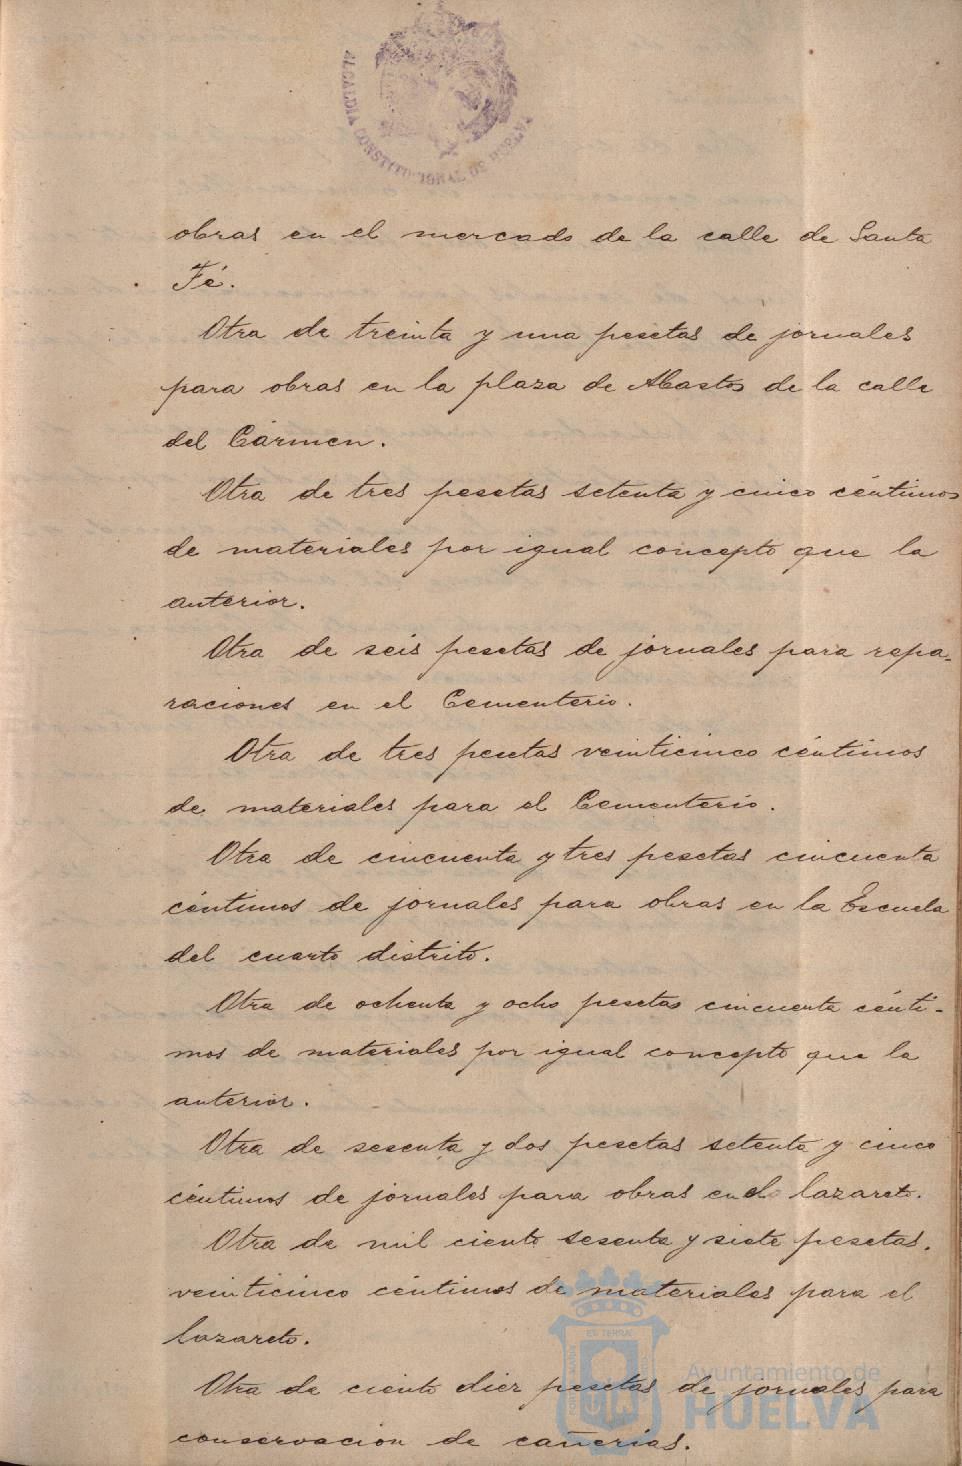 ALCALDIA CONSTITUCIONAL DE HUELVA
obras en el mercado de la calle de Santa
Fé.
Otra de treinta y una pesetas de jornales
para obras en la plaza de Abastos de la calle
del Cármen.
Otra de tres pesetas setenta y cinco céntimos
de materiales por igual concepto que la
anterior.
Otra de seis pesetas de jornales para repa-
raciones en el Cementerio.
Otra de tres pesetas veinticinco céntimos
de materiales para el Cementerio.
Otra de cincuenta y tres pesetas cincuenta
céntimos de jornales para obras en la Escuela
del cuarto distrito.
Otra de ochenta y ocho pesetas cincuenta cénti-
mos de materiales por igual concepto que la
anterior.
Otra de sesenta y dos pesetas setenta y cinco
céntimos de jornales para obras en el lazareto.
Otra de mil ciento sesenta y siete pesetas.
veinticinco céntimos de materiales para el
lazareto.
Otra de ciento diez pesetas de jornales para
conservacion de cañerias.
Ayuntamiento de
HUELVA